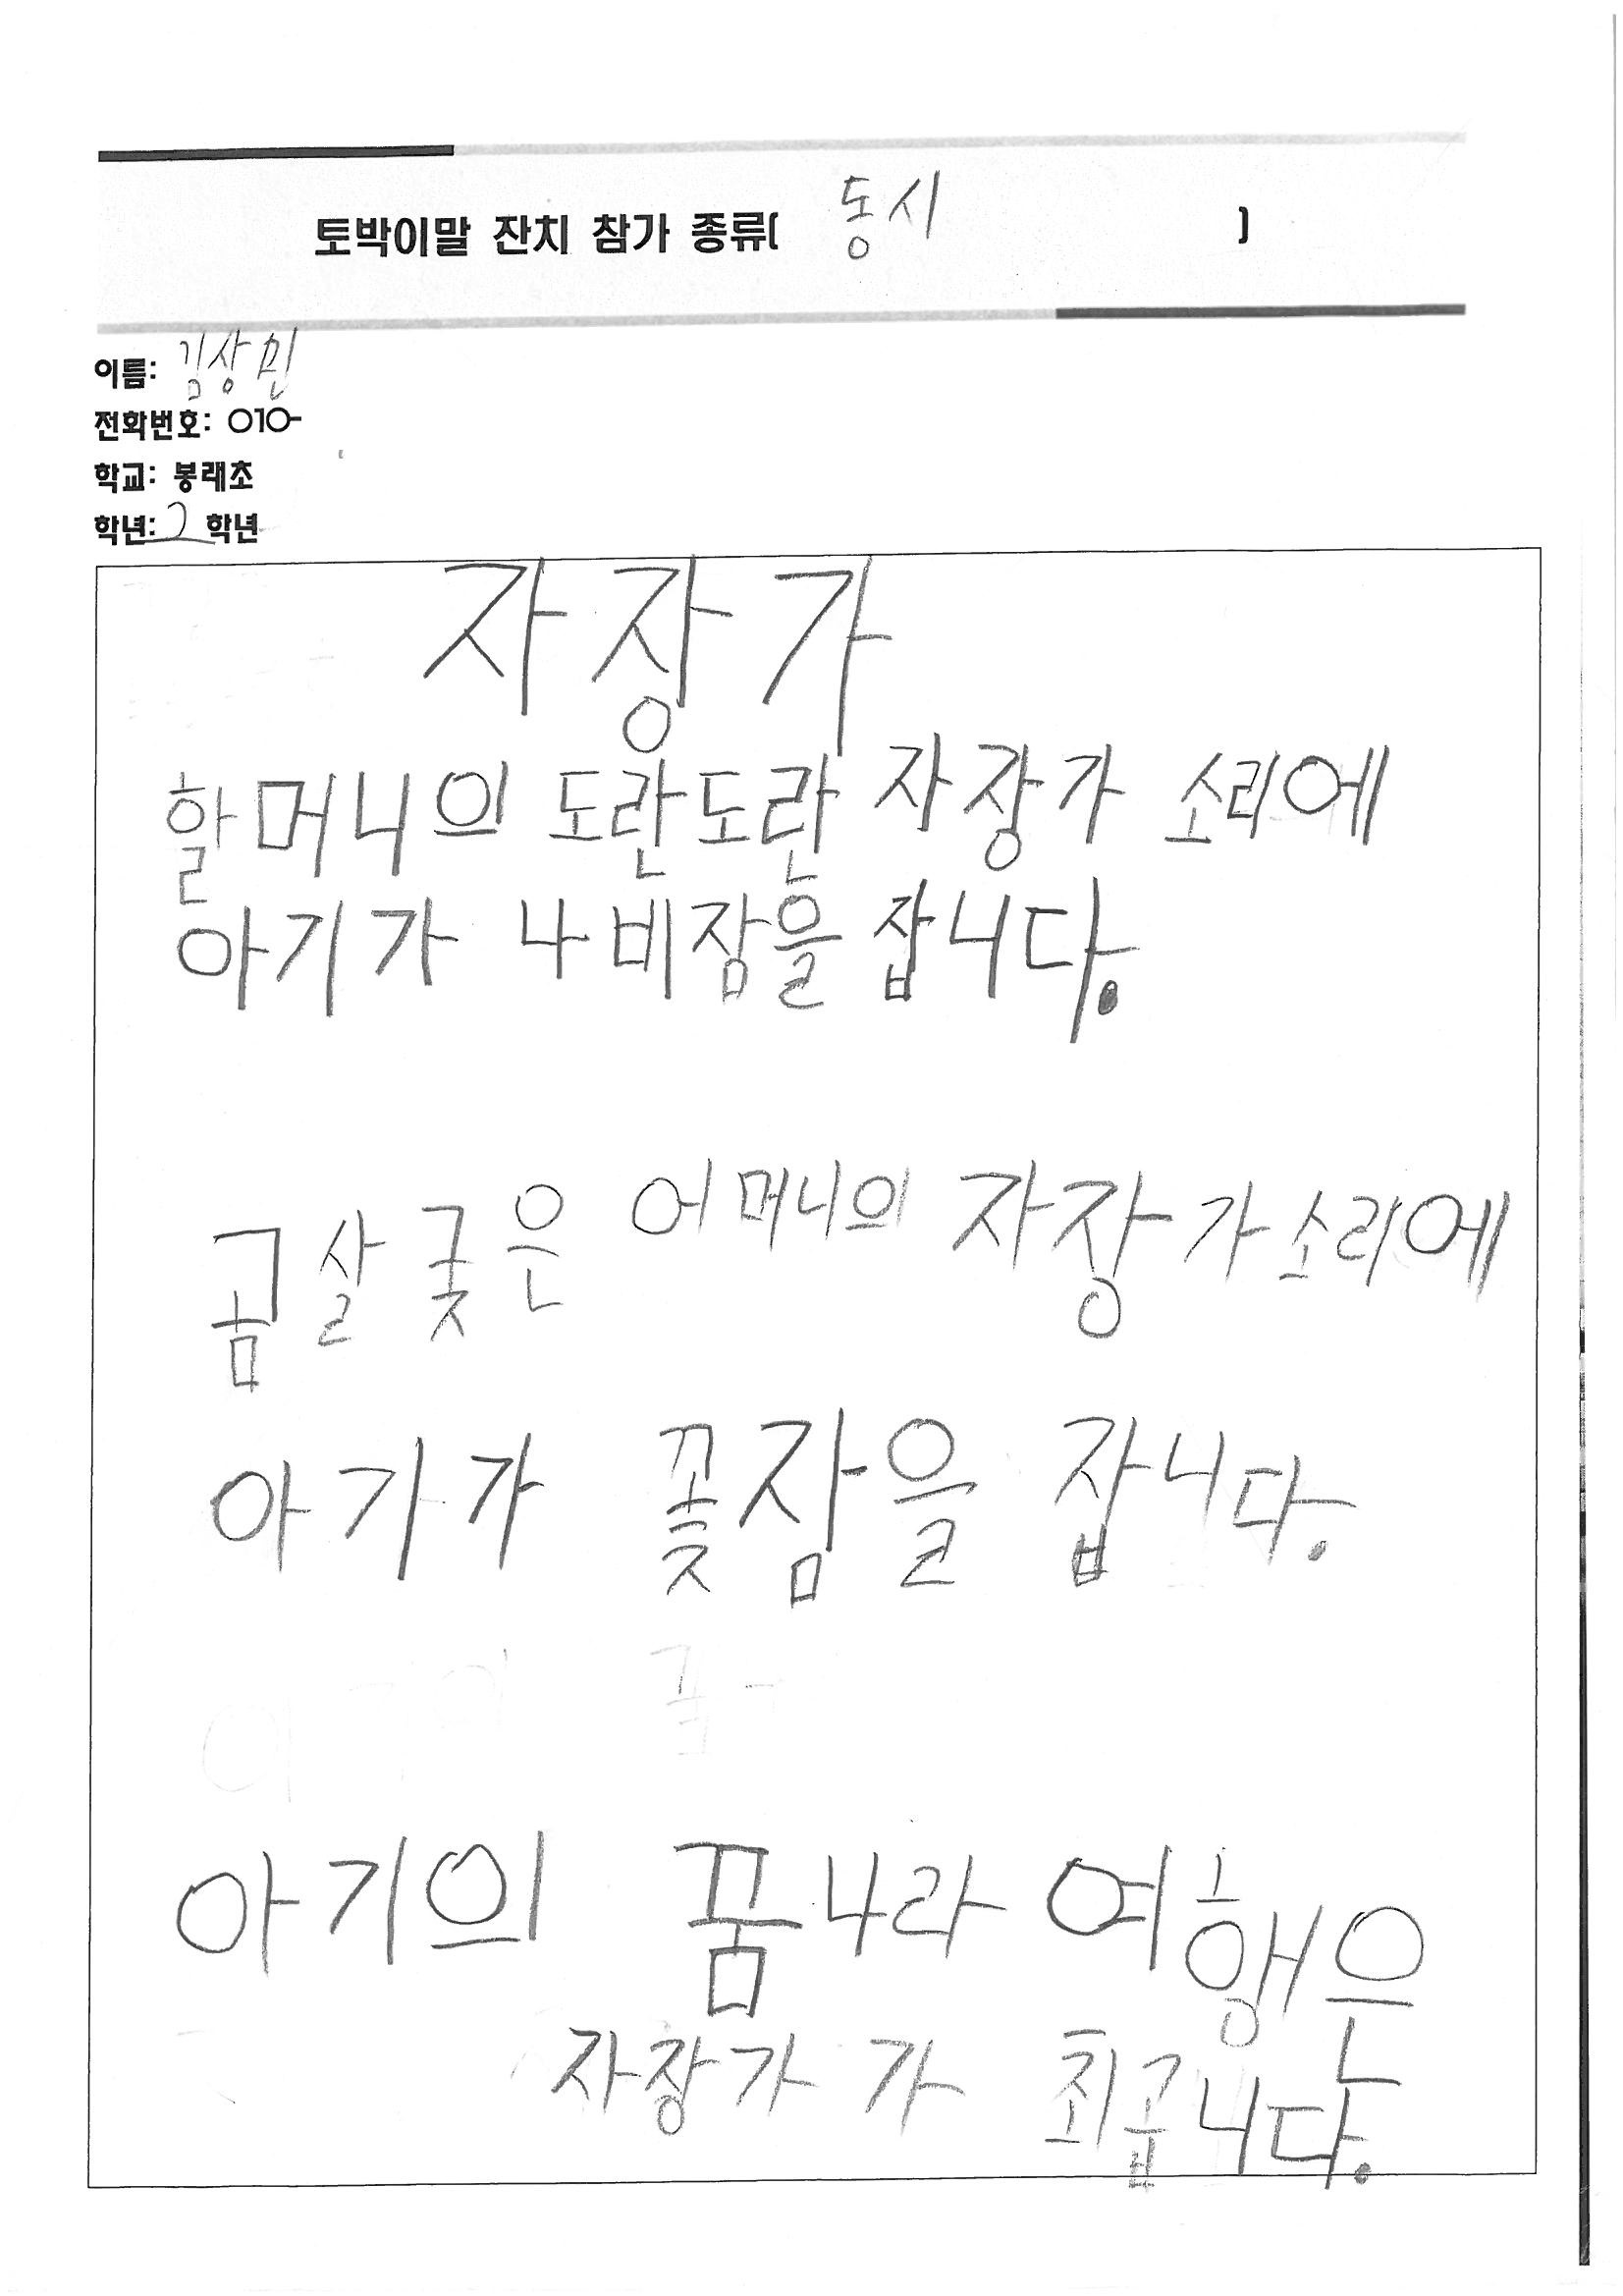 토박이말 잔치 참가 종류( 동시 )
이름: 김상민
전화번호: 010-
학교: 봉래초
학년: 2 학년
자장가
할머니의 도란도란 자장가 소리에
아기가 나비잠을 잡니다.
곰살궂은 어머니의 자장가소리에
아기가 꽃잠을 잡니다.
아기의 꿈나라 여행은
자장가가 최곱니다.